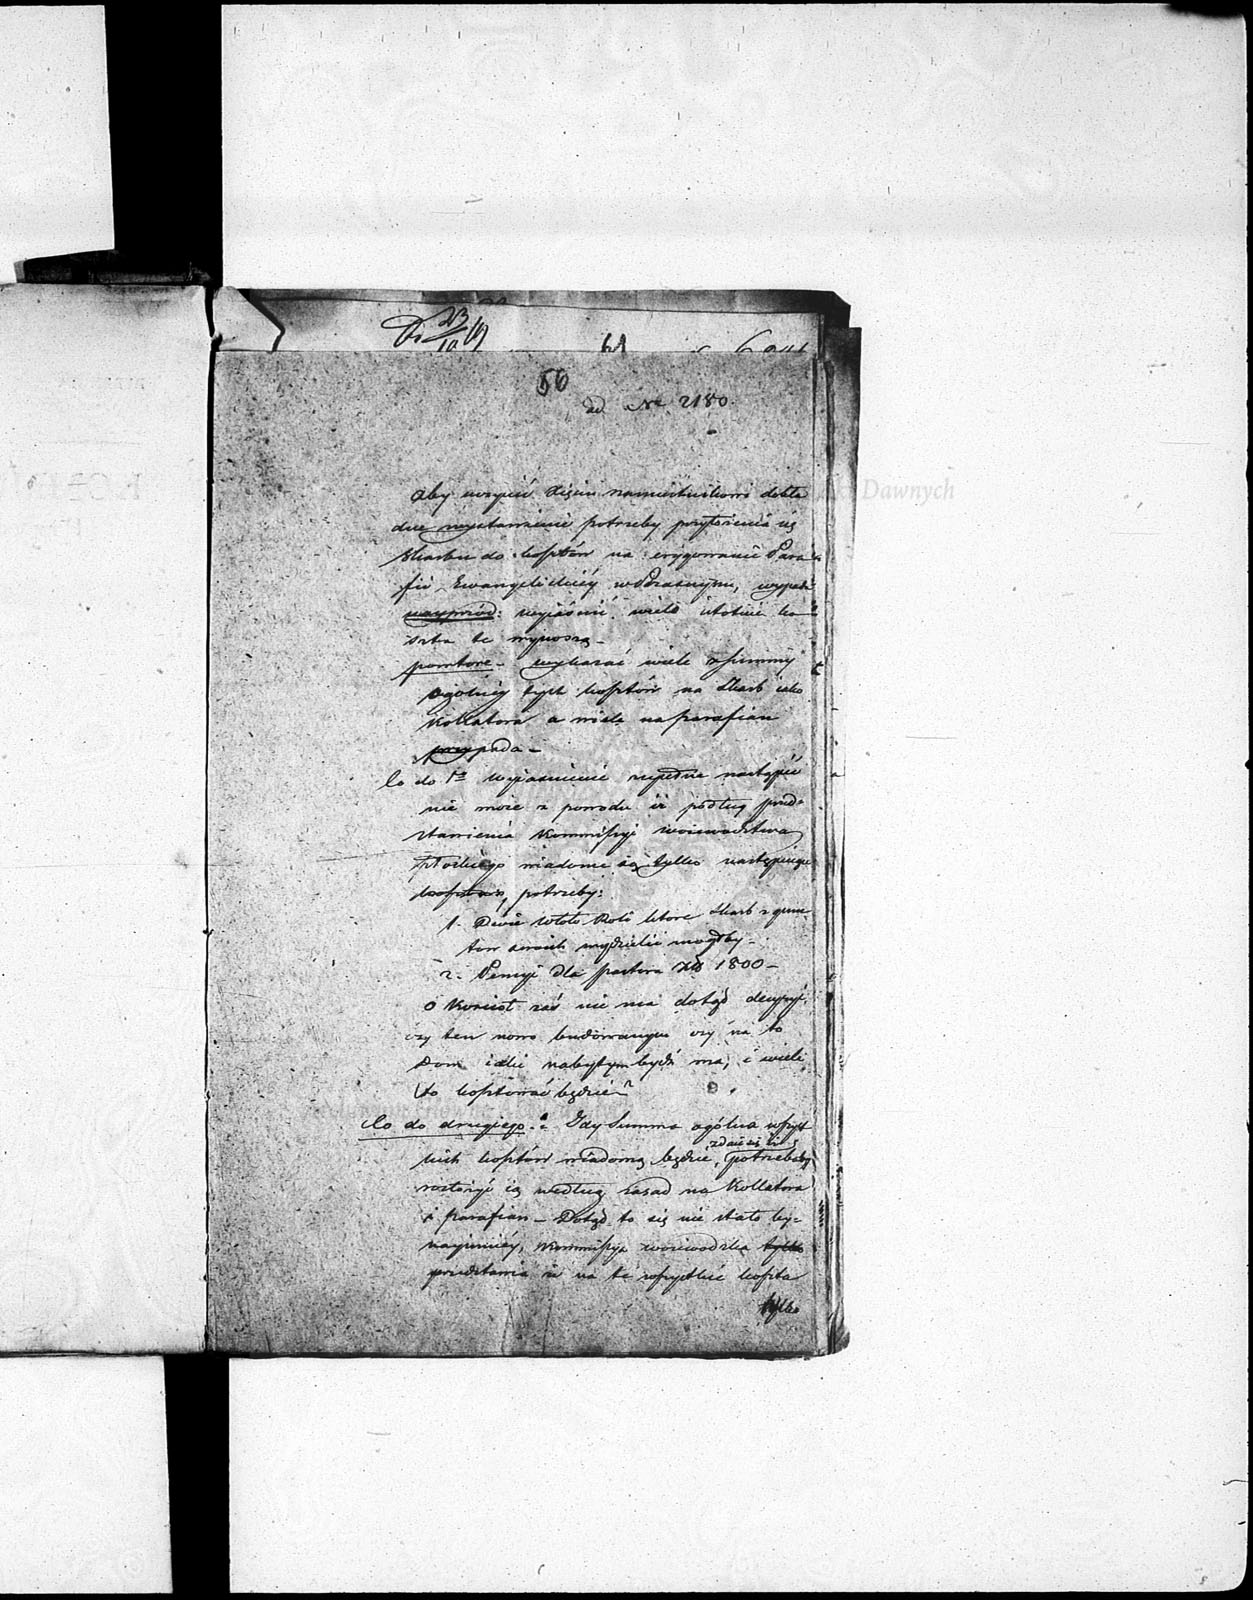 23/10 19
61
56
ad Nro 2180.
Aby uczynić Xięciu namiestnikowi dokła
dne wystawienie potrzeby przyłożenia się
skarbu do kosztów na erygowanie Para
fii Ewangelickiey w Przasnyszu, wypada
nayprzód: wyiaśnić wiele istotnie ko
szta te wynoszą –
powtóre – wykazać wiele z summy
ogólney tych kosztów na Skarb iako
Kollatora a wiele na parafian
przypada –
Co do 1o wyiaśnienie zupełne nastąpić
nie może z powodu iż podług przed=
stawienia Kommissyi woiewództwa
Płockiego wiadome są tylko następuiące
kosztów, potrzeby:
1. Dwie włoki Roli które skarb z grun
tów swoich wydzielić mógłby –
2. Pensyi dla pastora Złp 1800 –
o Kościół zaś nie ma dotąd decyzyi,
czy ten nowo budowanym czy na to
Dom iaki nabytym bydź ma, i wiele
to kosztować będzie?
Co do drugiego. Gdy Summa ogólna wszyst
kich kosztów wiadomą będzie, zdaie się że potrzebaby
rozłożyć ią według zasad na Kollatora
i parafian – Dotąd to się nie stało by=
naymniey, Kommissya woiewódzka tylko
przedstawia iż na te wszystkie koszta
tylko